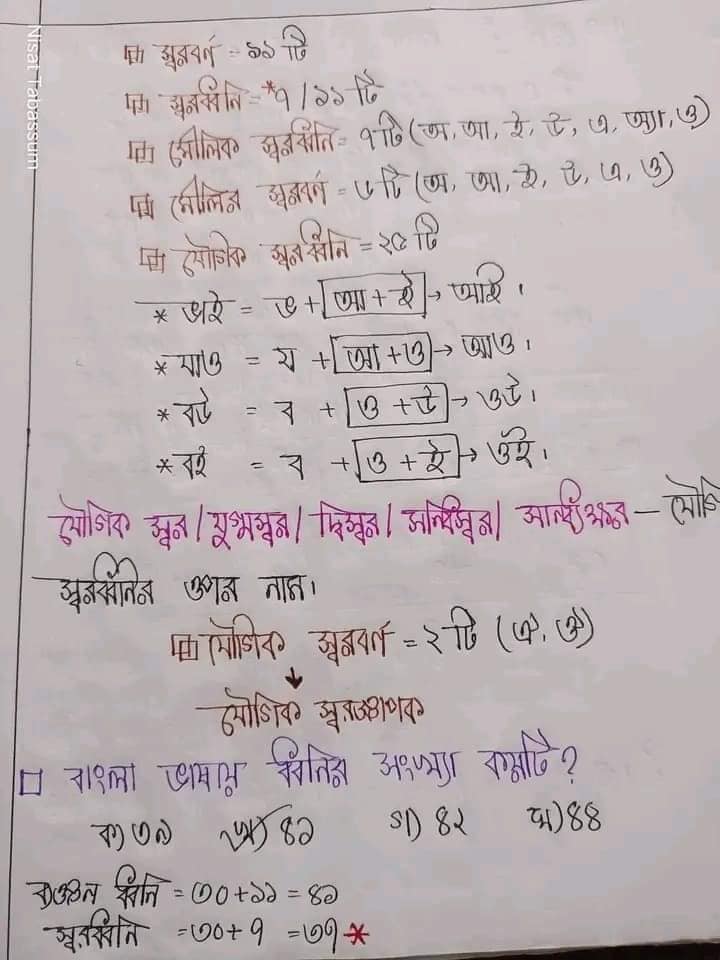 Nisat Tabassum
স্বরবর্ণ = ১১ টি
স্বরধ্বনি = *৭ / ১১ টি
মৌলিক স্বরধ্বনি = ৭টি (অ, আ, ই, উ, এ, অ্যা, ও)
মৌলিক স্বরবর্ণ = ৬টি (অ, আ, ই, উ, এ, ও)
যৌগিক স্বরধ্বনি = ২৫ টি
* ভাই = ভ + আ + ই → আই।
* যাও = য + আ + ও → আও।
* বউ = ব + ও + উ → ওউ।
* বই = ব + ও + ই → ওই।
যৌগিক স্বর / যুগ্মস্বর / দ্বিস্বর / সন্ধিস্বর / সান্ধ্যক্ষর – যৌগি
স্বরধ্বনির অপর নাম।
যৌগিক স্বরবর্ণ = ২ টি (ঐ, ঔ)
↓
যৌগিক স্বরজ্ঞাপক
বাংলা ভাষায় ধ্বনির সংখ্যা কয়টি?
ক) ৩৯ খ) ৪১ গ) ৪২ ঘ) ৪৪
ব্যঞ্জন ধ্বনি = ৩০ + ১১ = ৪১
স্বরধ্বনি = ৩০ + ৭ = ৩৭ *